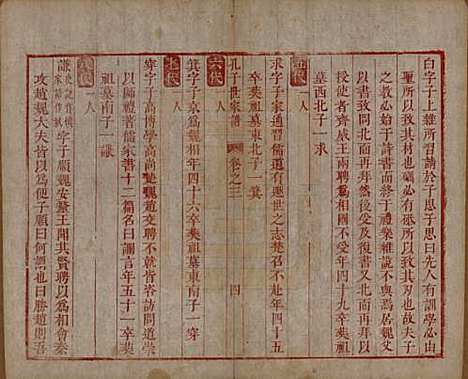 白字子上雜所習請於子思子思曰先人有訓學必由
聖所以致其材也礪所以致其刃也故夫子
之教必始於詩書而終于禮樂雜說不與焉
使者齊威王兩聘為相國不受年四十九卒葬祖
墓西北子一求
五代
一人
求字子家通習儒道有遯世之志楚召不赴年四十五
卒葬祖墓東北子一箕
六代
一人
孔子世家譜 卷之 四
箕字子京為魏相年四十六卒葬祖墓東南子一穿
七代
一人
穿字子高博學高尚楚魏趙交聘不就
以師禮著儒家書十二篇名曰讕言年五十一卒葬
祖墓南子一謙
八代
一人
謙 字子順魏安釐王聞其賢聘以為相會秦
攻趙魏大夫以為便子順曰何謂也曰勝趙則吾